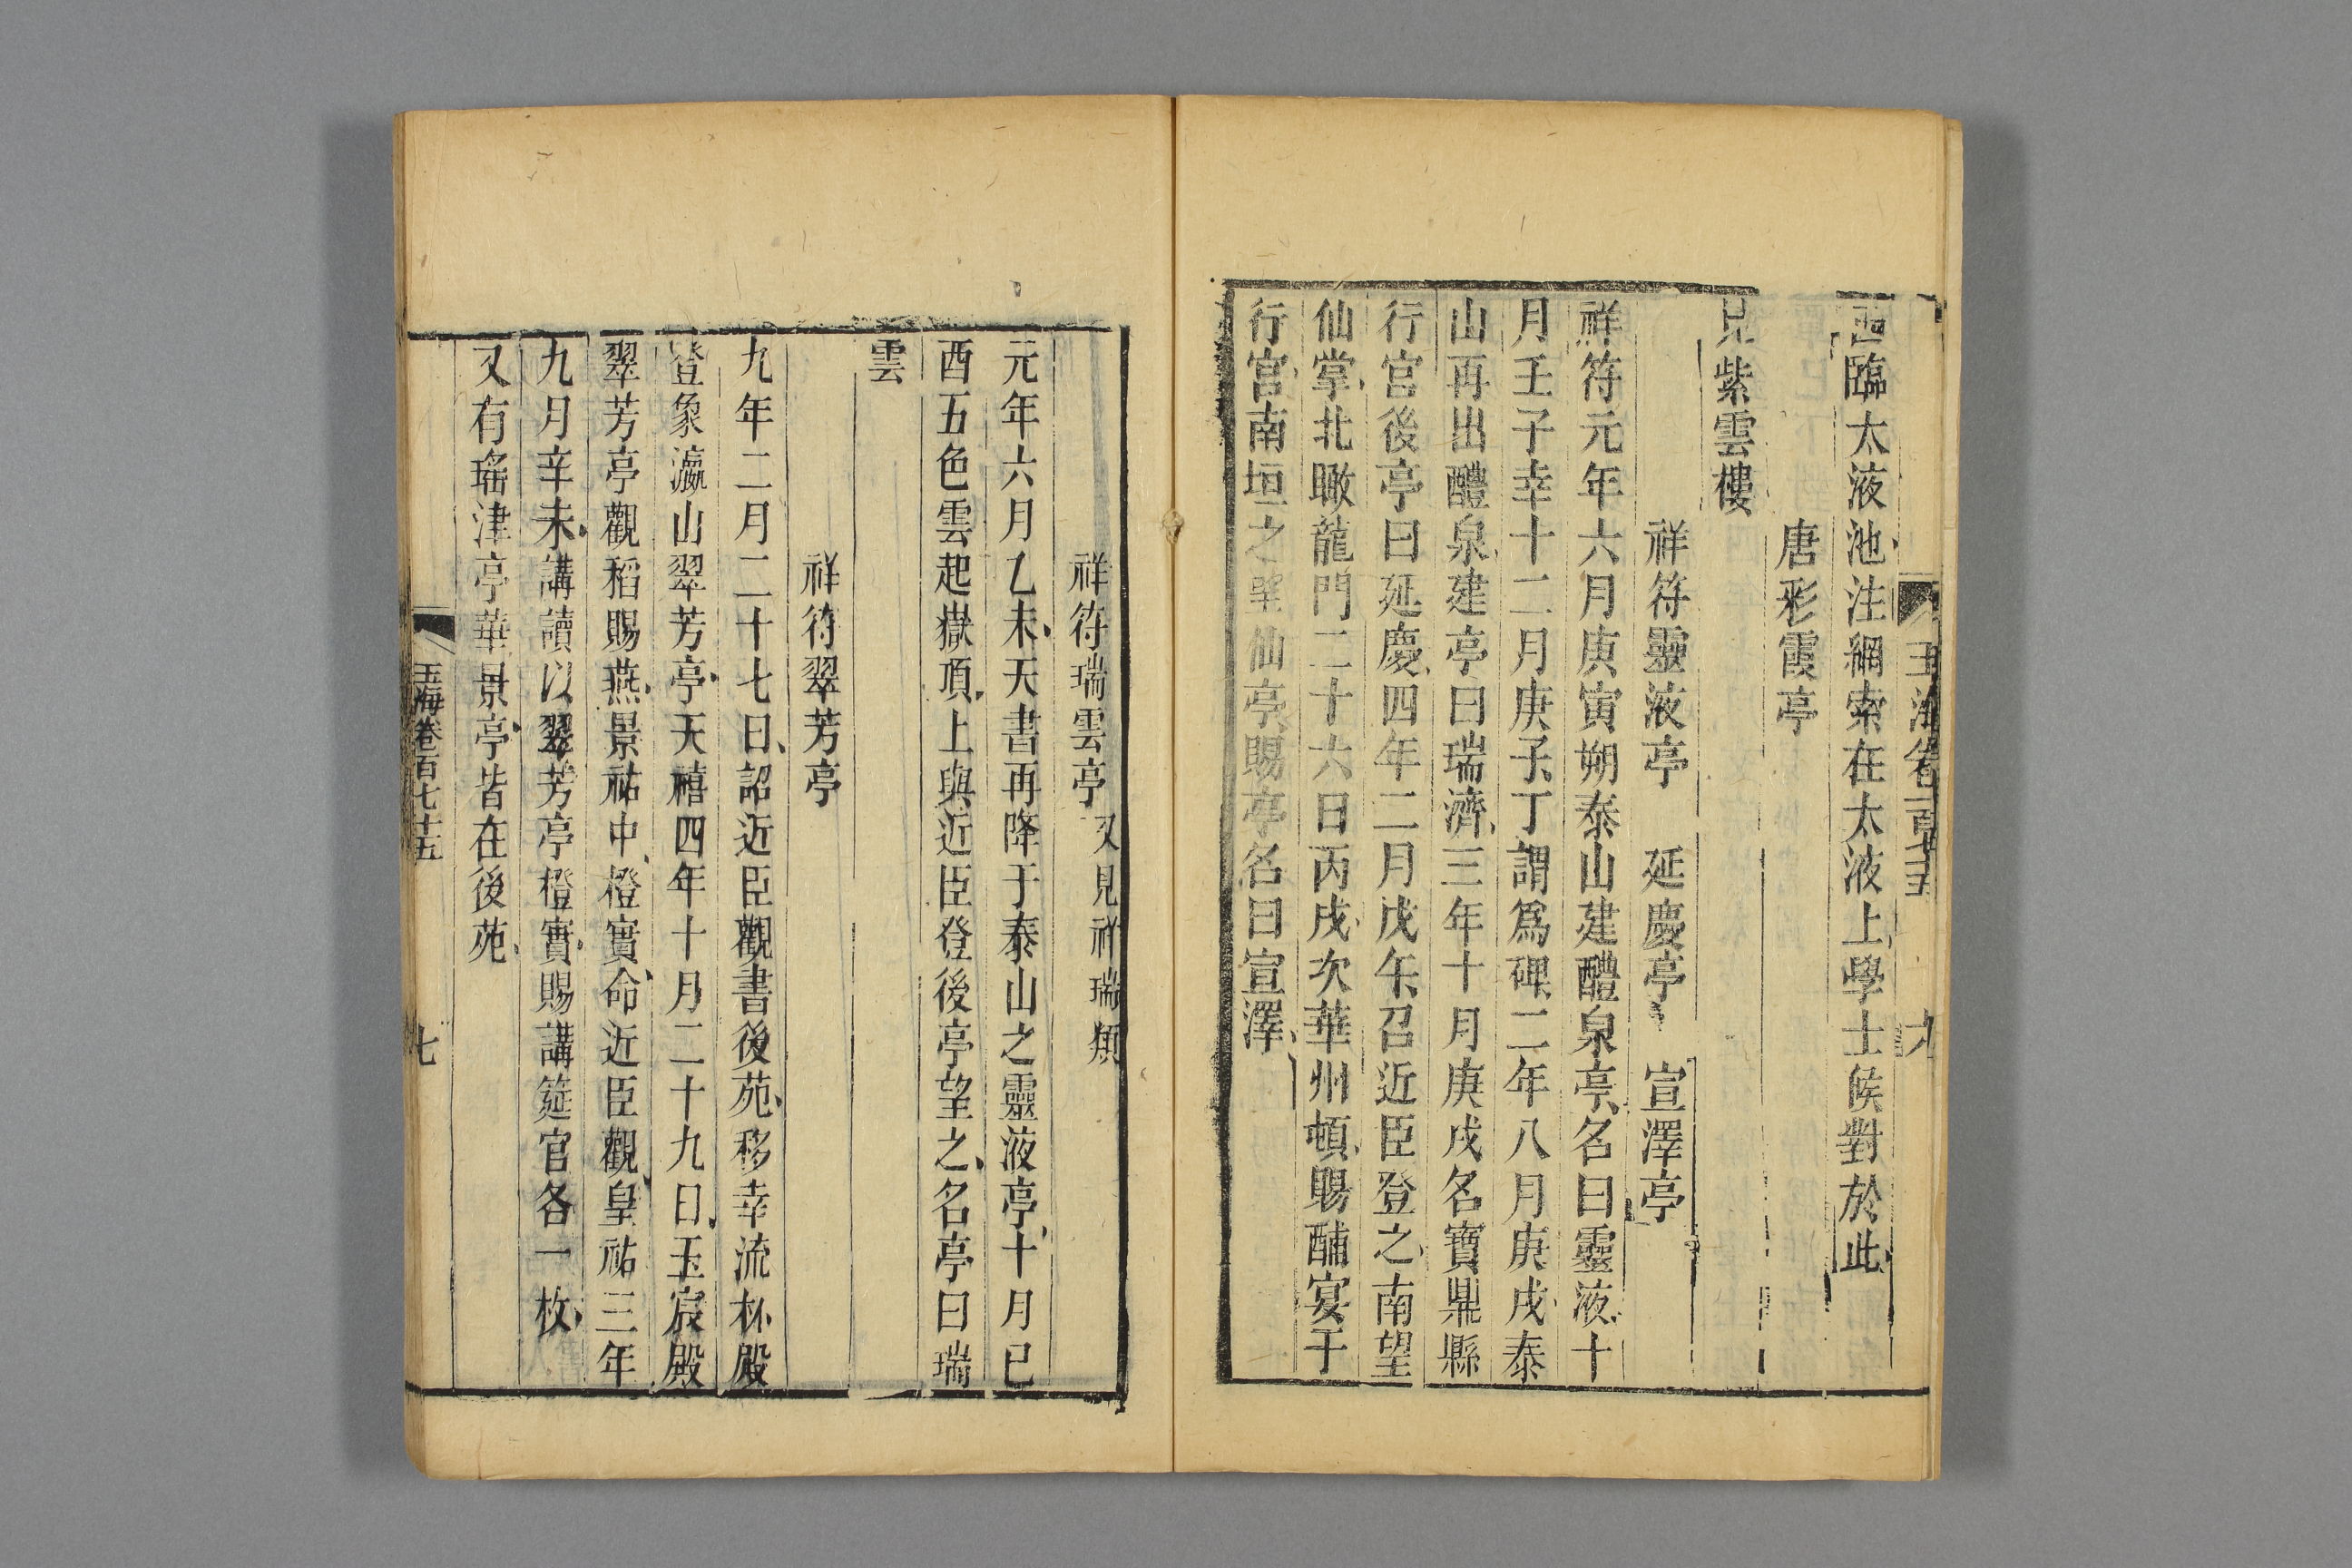 玉海卷一百七十五
西臨太液池注網索在太液上學士候對於此
唐彩霞亭
見紫雲樓
祥符靈液亭　延慶亭　宣澤亭
祥符元年六月庚寅朔泰山建醴泉亭名曰靈液十
月壬子幸十二月庚子丁謂爲碑二年八月庚戌泰
山再出醴泉建亭曰瑞濟三年十月庚戌名寶鼎縣
行宫後亭曰延慶四年二月戊午召近臣登之南望
仙掌北瞰龍門二十六日丙戌次華州頓賜酺宴于
行宫南垣之望仙亭賜亭名曰宣澤
祥符瑞雲亭　又見祥瑞類
元年六月乙未天書再降于泰山之靈液亭十月已
酉五色雲起嶽頂上與近臣登後亭望之名亭曰瑞
雲
祥符翠芳亭
九年二月二十七日詔近臣觀書後苑移幸流杯殿
登象瀛山翠芳亭天禧四年十月二十九日玉宸殿
翠芳亭觀稻賜燕景祐中橙實命近臣觀皇祐三年
九月辛未講讀以翠芳亭橙實賜講筵官各一枚
又有瑤津亭華景亭皆在後苑
玉海卷百七十五　七